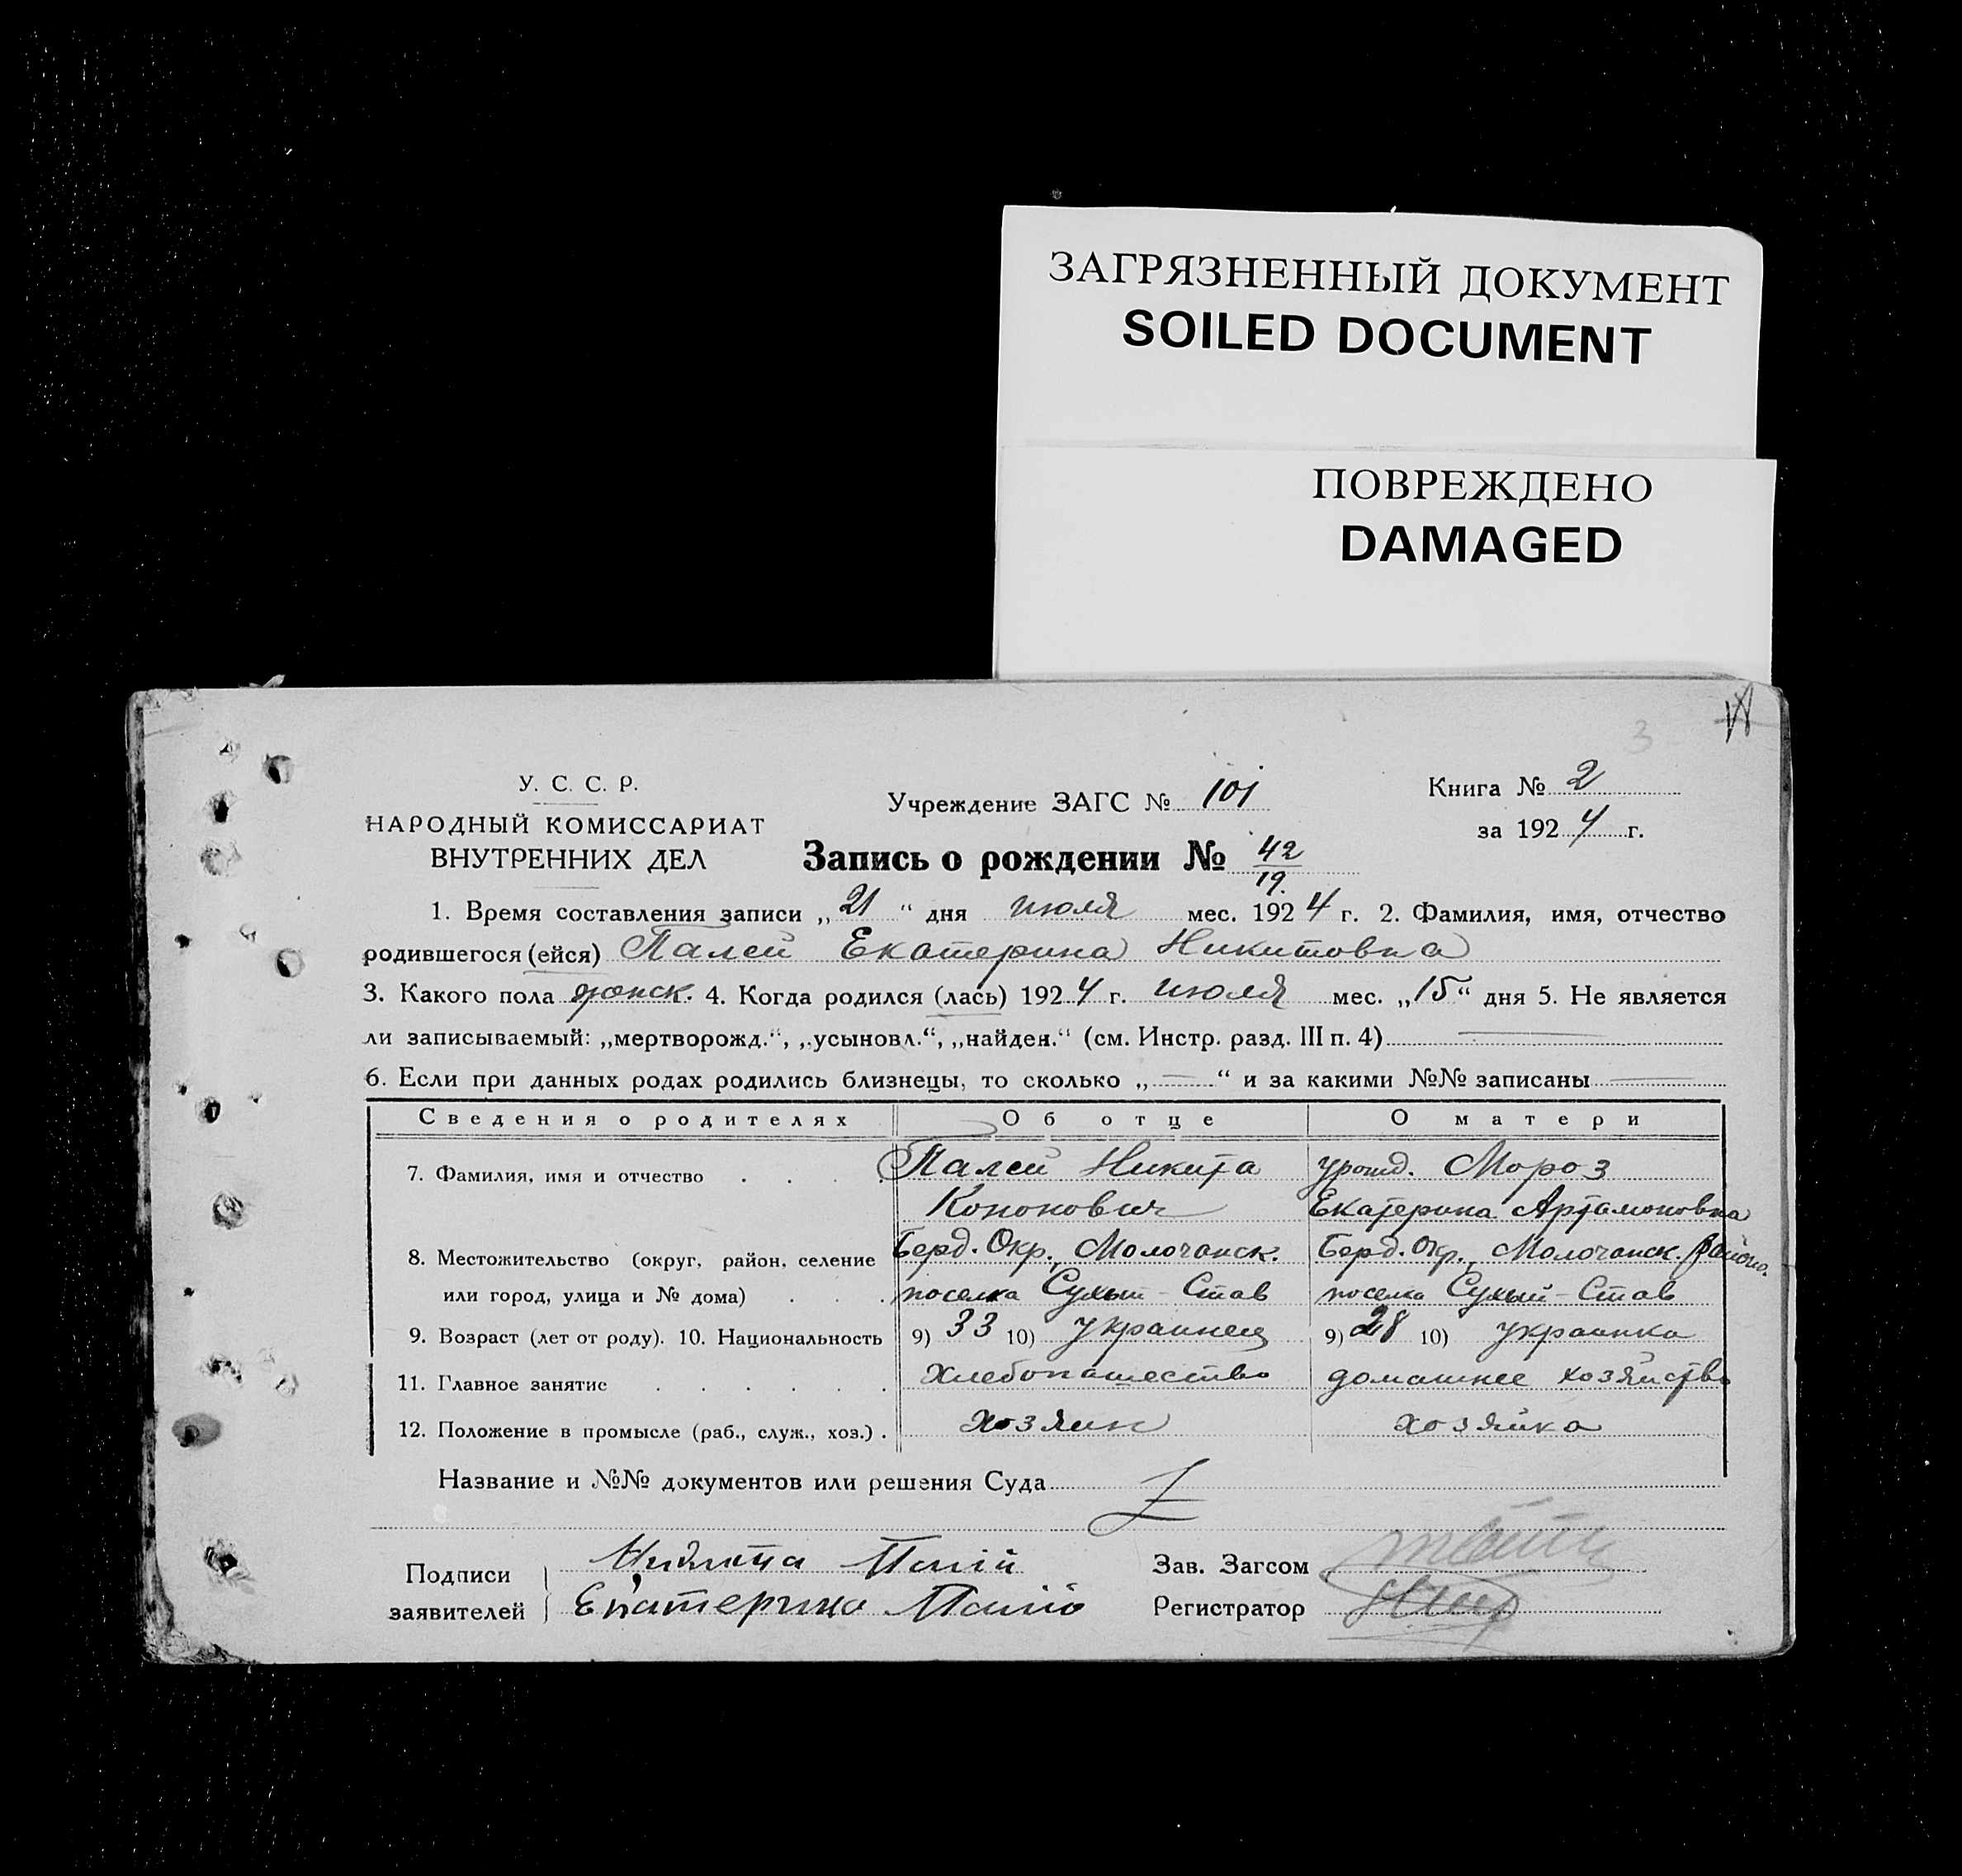 ЗАГРЯЗНЕННЫЙ ДОКУМЕНТ
SOILED DOCUMENT
ПОВРЕЖДЕНО
DAMAGED
3
У. С. С. Р.
НАРОДНЫЙ КОМИССАРИАТ
ВНУТРЕННИХ ДЕЛ
Учреждение ЗАГС № 101
Книга № 2
за 1924 г.
Запись о рождении № 42
19.
1. Время составления записи „21“ дня июля мес. 1924 г. 2. Фамилия, имя, отчество
родившегося (ейся) Палей Екатерина Никитовна
3. Какого пола женск. 4. Когда родился (лась) 1924 г. июля мес. „15“ дня 5. Не является
ли записываемый: „мертворожд.“, „усыновл.“, „найден.“ (см. Инстр. разд. III п. 4)
6. Если при данных родах родились близнецы, то сколько „—“ и за какими №№ записаны —
Сведения о родителях Об отце О матери
7. Фамилия, имя и отчество Палей Никита урожд. Мороз
Кононович Екатерина Артамоновна
8. Местожительство (округ, район, селение Берд. Окр., Молочанск. Берд. Окр., Молочанск. района.
или город, улица и № дома) поселка Сухый-Став поселка Сухый-Став
9. Возраст (лет от роду). 10. Национальность 9) 33 10) украинец 9) 28 10) украинка
11. Главное занятие хлебопашество домашнее хозяйство
12. Положение в промысле (раб., служ., хоз.) . хозяин хозяйка
Название и №№ документов или решения Суда
Подписи заявителей
Палій
Екатерина Палій
Зав. Загсом
Регистратор